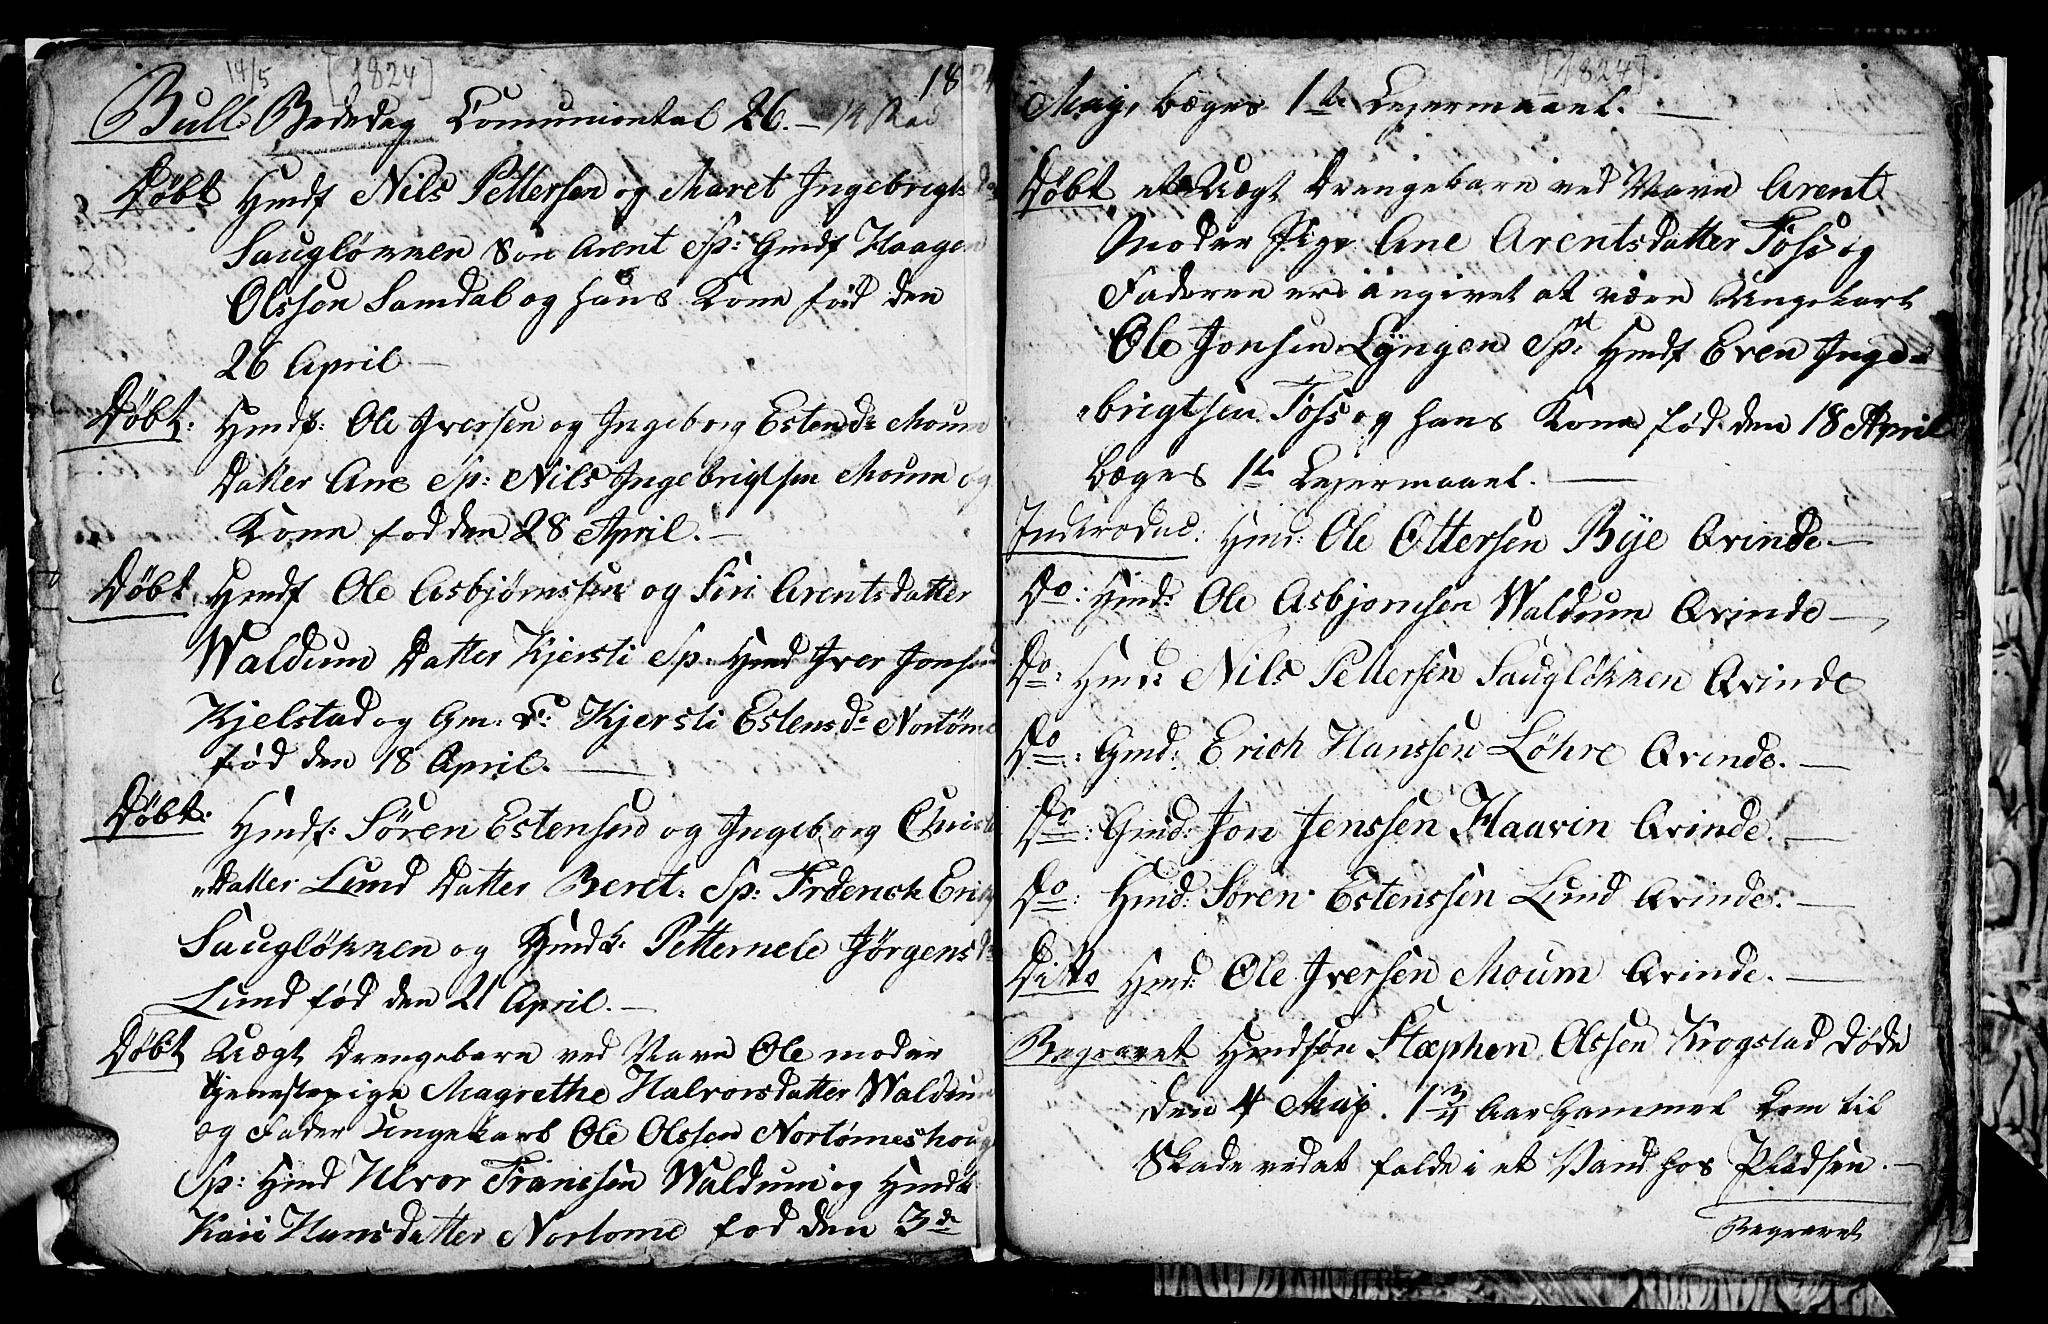 14/5 [1824] 18 24
Bull: Bededag Comuniental 26. – 14 Mai
Døbt Hmdf Nils Pettersen og Maret Ingebrigts D
Saugløkken Søn Arent Sp: Gmdf Haagen
Olssen Samdal og hans Kone fød den
26 April –
Døbt: Hmdf: Ole Iversen og Ingeborg Estend: Moum
Datter Ane Sp: Nils Ingebrigtsen Moum og
Kone fød den 28 April. –
Døbt Hmdf Ole Asbjørnssen og Siri Arentsdatter
Waldum Datter Kjersti Sp: Hmd Iver Jonsen
Kjelstad og Gm: Kjersti Estens D: Nortøme
fød den 18 April. –
Døbt: Hmdf: Søren Estensen og Ingeborg Christ
datter Lund Datter Beret: Sp: Frderich Erich
Saugløkken og Hmdk: Petternele Jørgens D:
Lund fød den 21 April. –
Døbt Uægt Drengebarn ved Navn Ole moder
tjenestepige Magrethe Halvorsdatter Waldum
og Fader Ungekarl Ole Olssen Nortømeshoug
Sp: Hmd Halvor Franssen Waldum og Hmdk
Kari Hansdatter Nortome fød den 3de
[1824]
Maj, bæges 1te Lejermaael. –
Døbt et Uægt Drengebarn ved Navn Arent
Moder Pige Ane Arentsdatter Foss og
Faderen er angivet at være Ungekarl
Ole Jonsen Lyngen Sp: Hmdf Even Inge
brigtsen Foss og hans Kone fød den 18 April
bæges 1te Lejermaael. –
Introduc: Hmd: Ole Ottersen Bye Qvinde –
Do: Hmd: Ole Asbjornsen Waldum Qvinde –
Do: Hmd: Nils Pettersen Saugløkken Qvinde
Do: Gmd: Erich Hanssen Løhre Qvinde. –
Do: Gmd: Jon Jenssen Haavin Qvinde. –
Do: Hmd: Søren Estenssen Lund Qvinde. –
Ditto Hmd: Ole Iversen Moum Qvinde. –
Begravet Hmdsøn Stæphen Olssen Krogstad døde
den 4 Maj. 1 3/4 Aar Gammel kom til
Skade ved at falde i et Vand hos Pladsen. –
Begravet